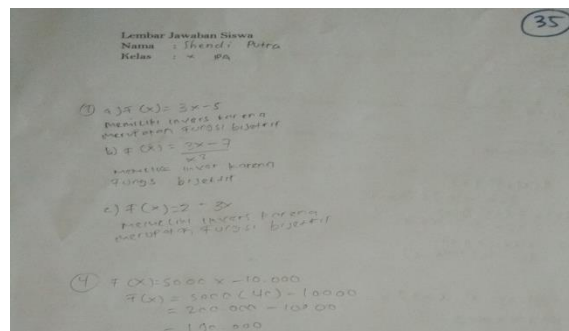 35
Lembar Jawaban Siswa
Nama : Shendi Putra
Kelas : X IPA
① a) F(x) = 3x-5
memiliki invers karena
merupakan fungsi bijektif
b) F(x) = 2x-7
memiliki karena
fungsi bijektif
c) F(x)=2-3x
memiliki invers karena
fungsi bijektif
④ F(x)=5000x-10.000
F(x) = 5000(40)-10000
= 200.000 - 10000
= 190.000